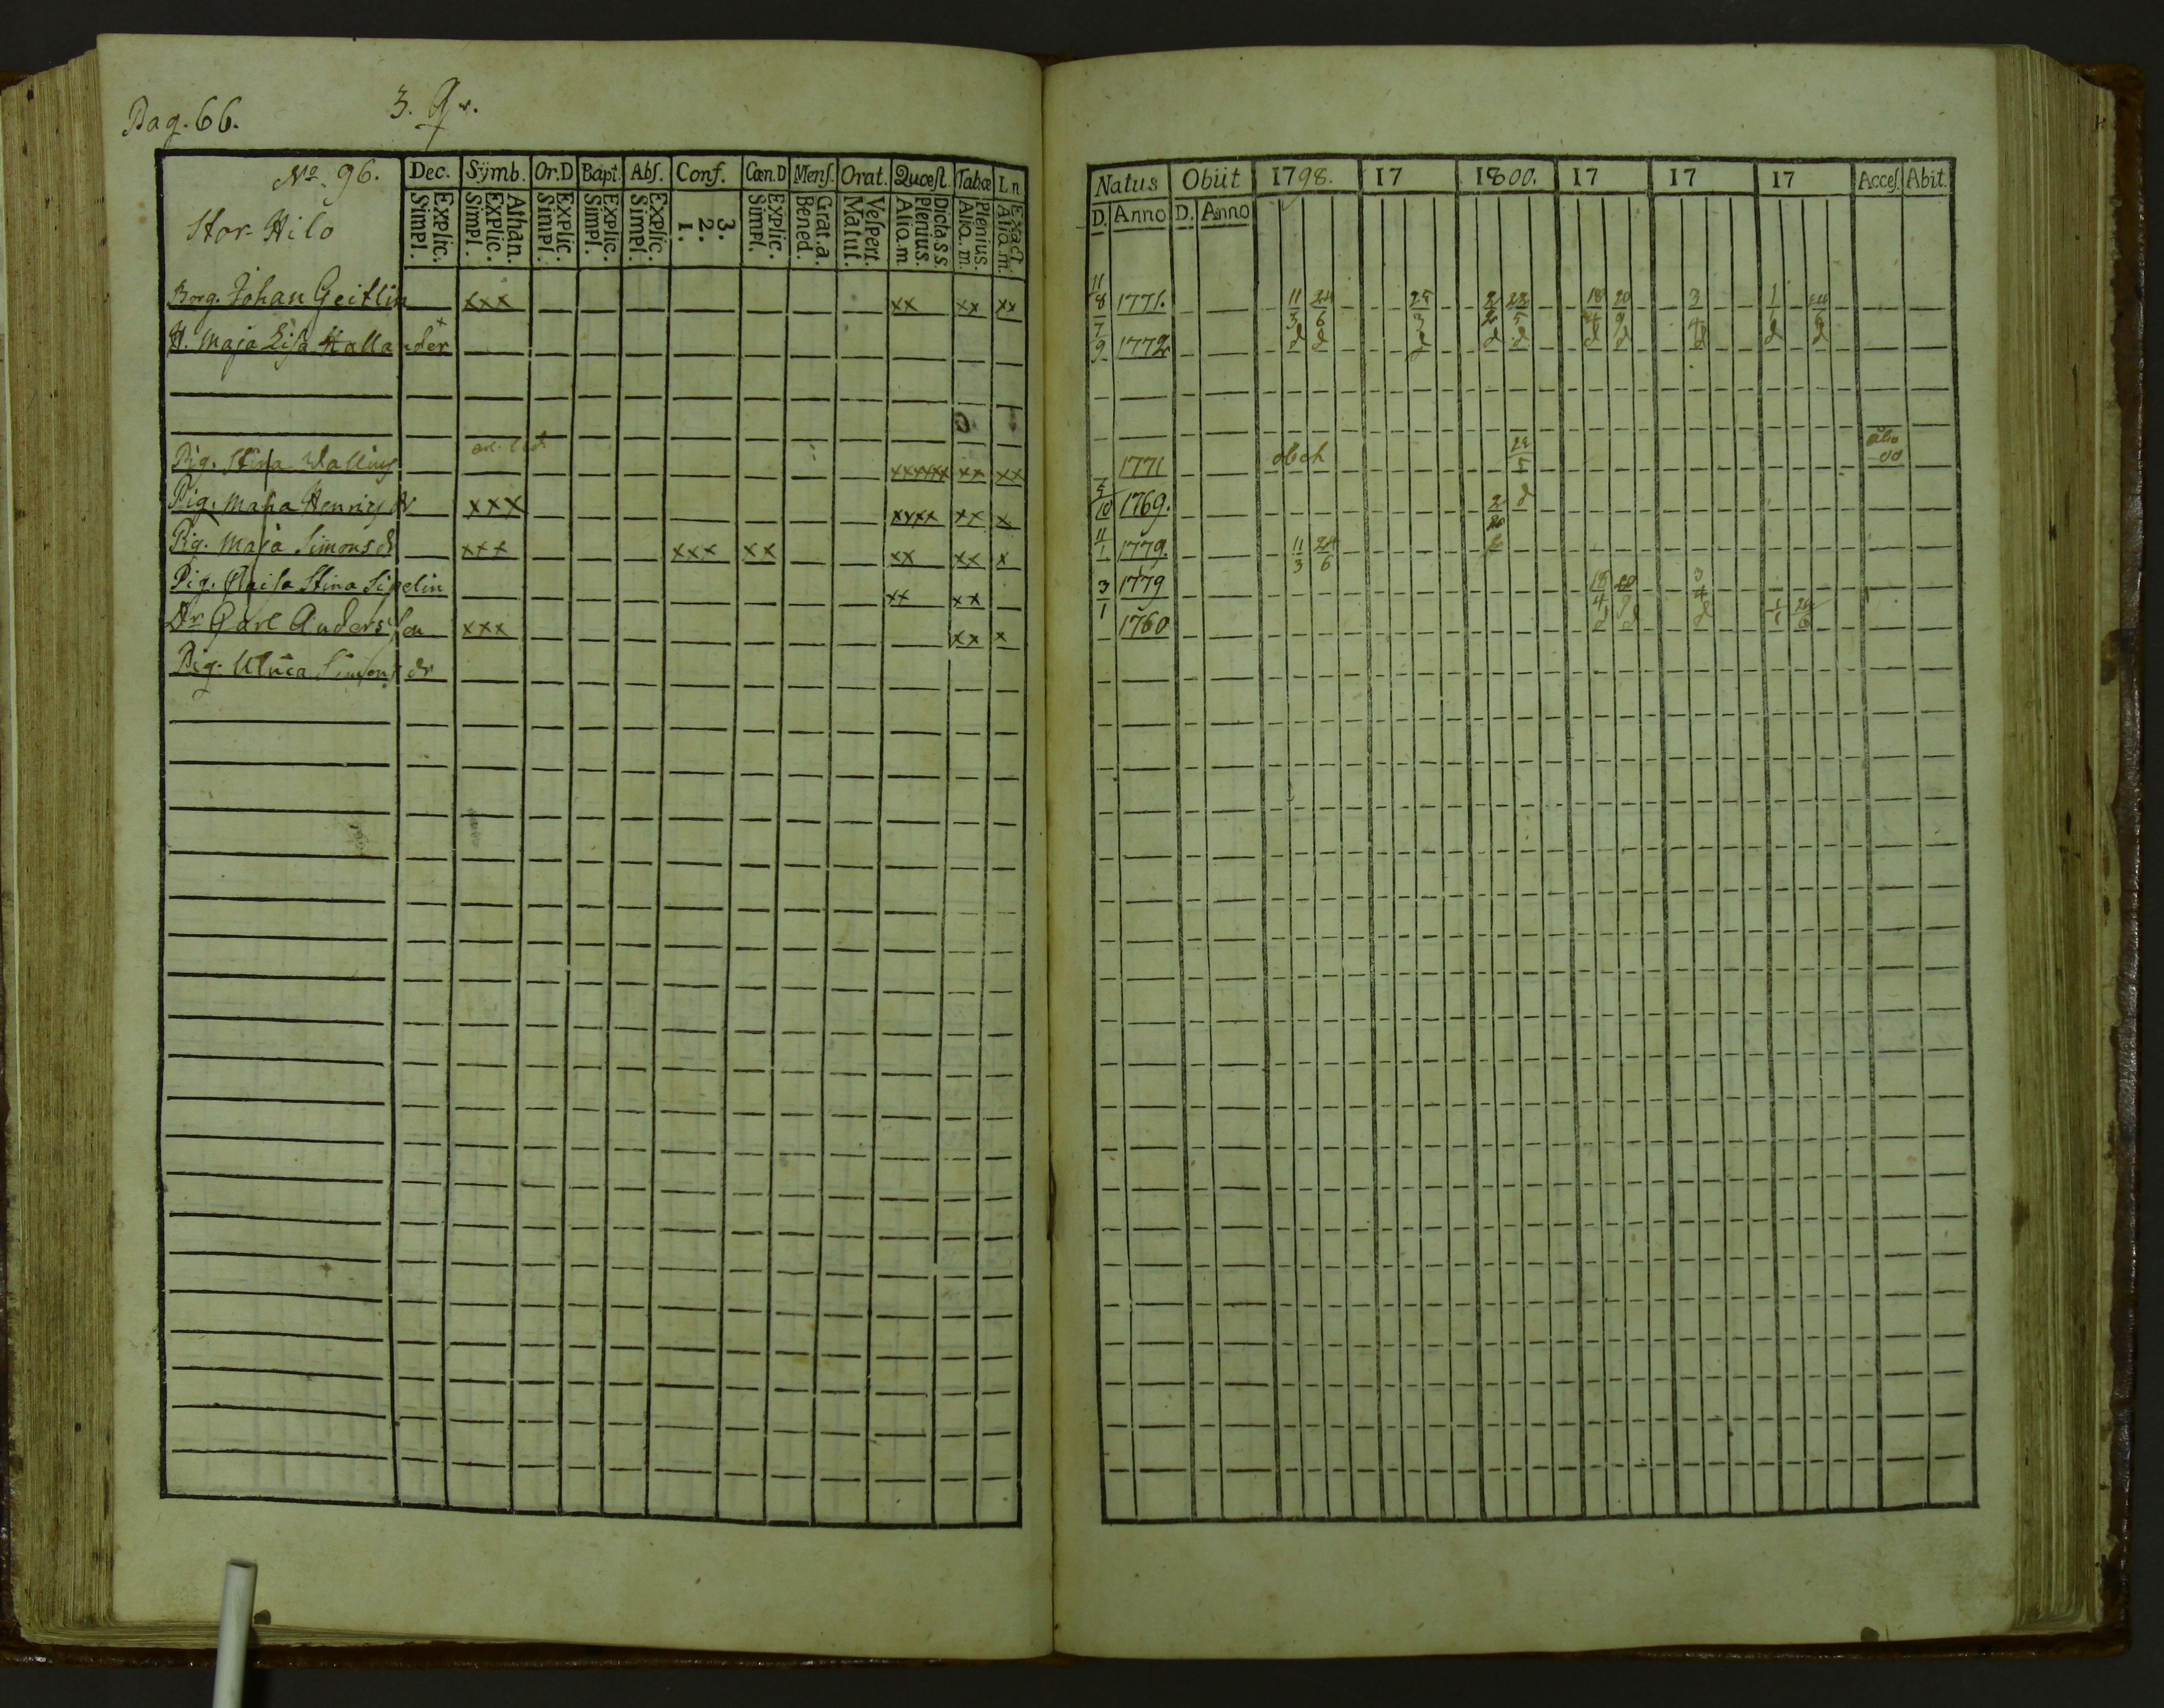 Pag. 66.
3. Qr.
No. 96.
Dec. Symb. Or.D Bapt. Abs. Conf. Cœn.D Mens. Orat. Quæst. Tabœ L.n.
Explic. Simpl. Athan. Explic. Simpl. Explic. Simpl. Explic. Simpl. Explic. Simpl. 3. 2. 1. Explic. Simpl. Grat.a. Bened. Vespert. Matut. Dicta.s.s. Plenius. Alio.m Plenius. Alio.m. Exact. Alio.m.
Stor-Hilo
Borg. Johan Geitlin xxx xx xx xx
H. Maja Lisa Hallander
Pig. Stina Wallius xxxxxx xx xx
Pig. Maria Henrics dr xxx xxxx xx x
Pig. Maja Simons dr xxx xxx xx xx xx x
Pig. Caisa Stina Sipelin xx xx
Dr Carl Andersson xxx xx x
Pig. Ulrica Simons dr
Natus Obiit 1798. 17 1800. 17 17 17 Acces. Abit.
D. Anno D. Anno
11/8 1771. 11/3 24/6 25/3 18/4 20/9 3/4 1/1 24/6
7/9 1772
1771 29/5 00
5/10 1769.
11/1 1779. 11/3 24/6
3/1 1779 18/4 20/9 3/4
1760 1/1 24/6